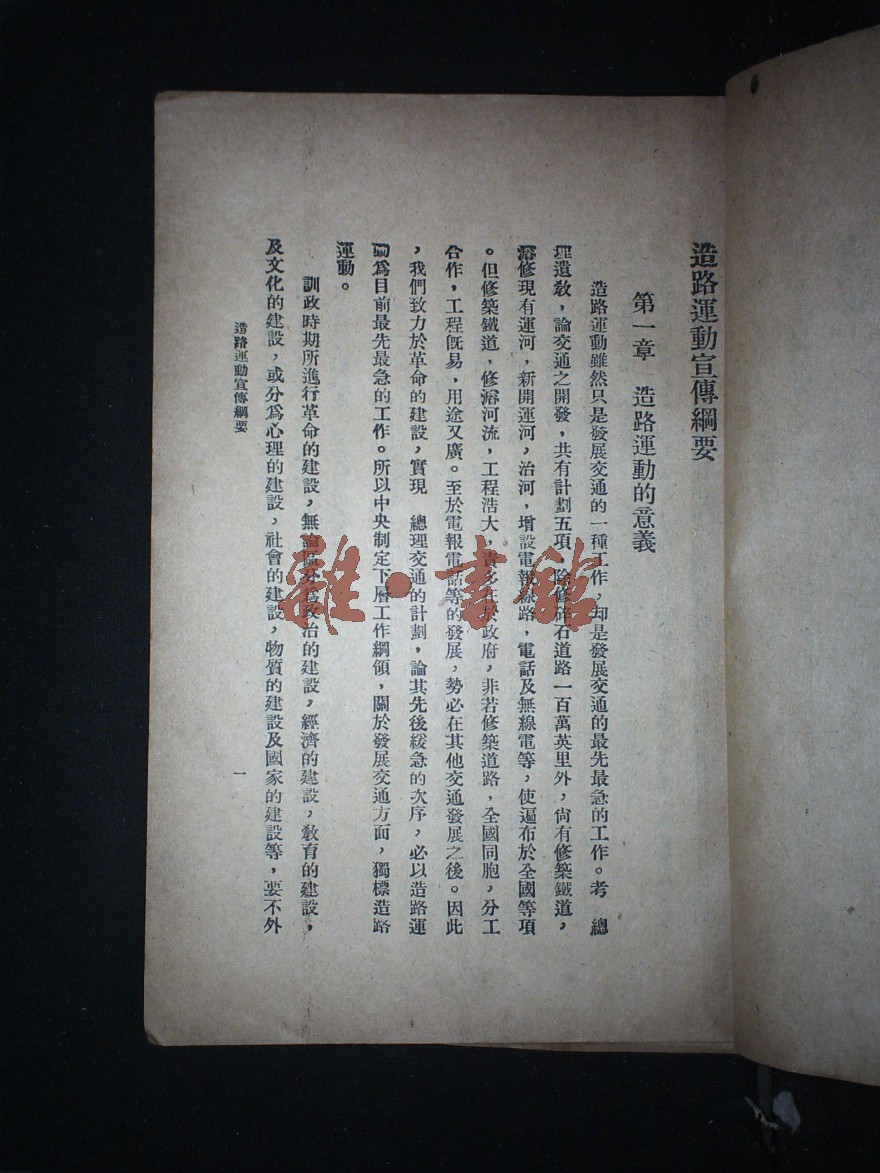 造路運動宣傳綱要
第一章　造路運動的意義
造路運動雖然只是發展交通的一種工作，却是發展交通的最先最急的工作。考　總
理遺敎，論交通之開發，共有計劃五項，除修碎石道路一百萬英里外，尙有修築鐵道，
濬修現有運河，新開運河，治河，增設電報線路，電話及無線電等，使遍布於全國等項
。但修築鐵道，修濬河流，工程浩大，責多在於政府，非若修築道路，全國同胞，分工
合作，工程旣易，用途又廣。至於電報電話等的發展，勢必在其他交通發展之後。因此
，我們致力於革命的建設，實現　總理交通的計劃，論其先後緩急的次序，必以造路運
動爲目前最先最急的工作。所以中央制定下層工作綱領，關於發展交通方面，獨標造路
運動。
訓政時期所進行革命的建設，無論區分爲政治的建設，經濟的建設，敎育的建設，
及文化的建設，或分爲心理的建設，社會的建設，物質的建設及國家的建設等，要不外
造路運動宣傳綱要
一
雜·書館